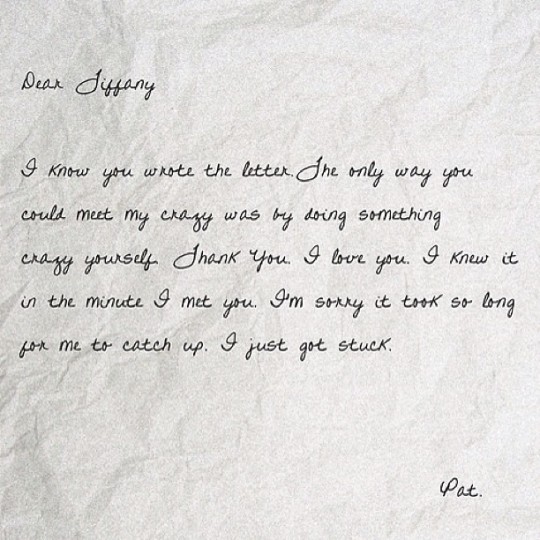 Dear Tiffany
I know you wrote the letter. The only way you
could meet my crazy was by doing something
crazy yourself. Thank You. I love you. I knew it
in the minute I met you. I'm sorry it took so long
for me to catch up. I just got stuck.
Pat.